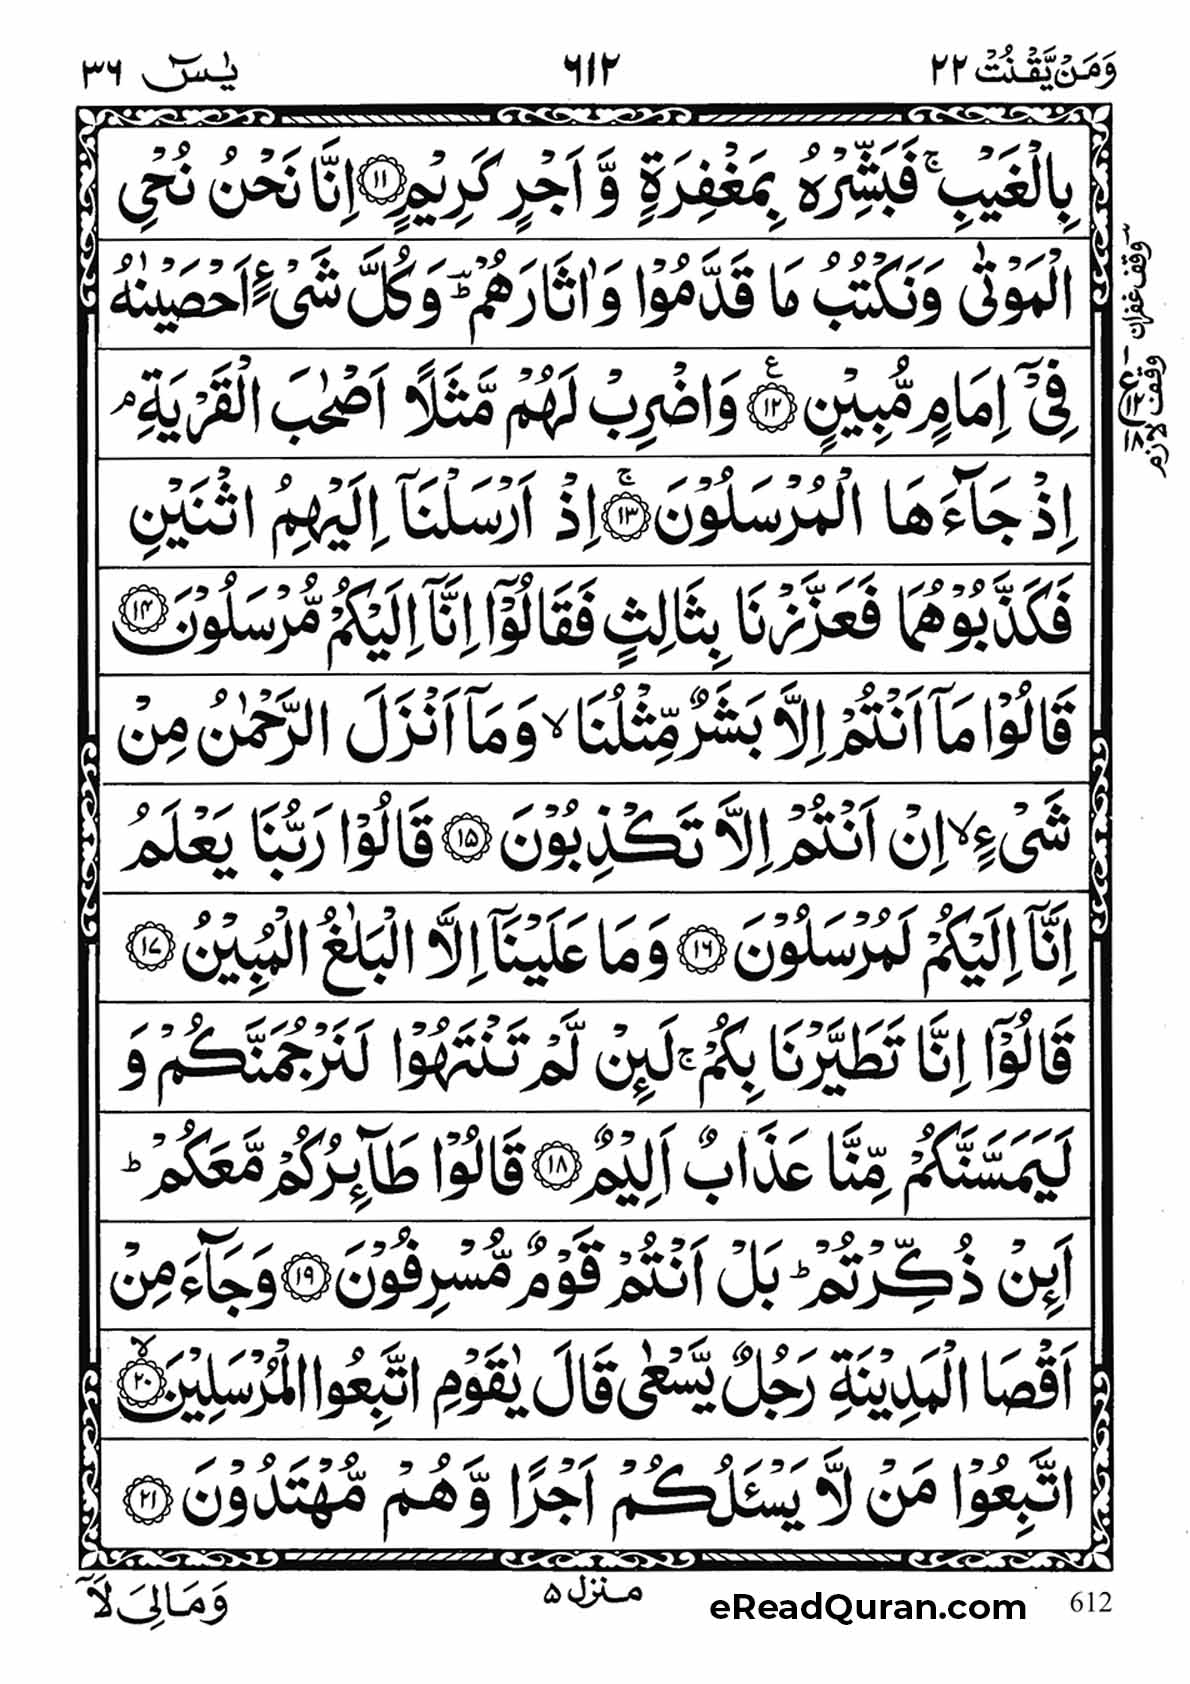 وَمَنْ يَّقْنُتْ ٢٢
٦١٢
يٰسٓ ٣٦
بِالْغَيْبِ ۚ فَبَشِّرْهُ بِمَغْفِرَةٍ وَّ اَجْرٍ كَرِيْمٍ ١١ اِنَّا نَحْنُ نُحْيِ
الْمَوْتٰى وَنَكْتُبُ مَا قَدَّمُوْا وَاٰثَارَهُمْ ؕ وَكُلَّ شَىْءٍ اَحْصَيْنٰهُ
فِىْٓ اِمَامٍ مُّبِيْنٍ ١٢ ع وَاضْرِبْ لَهُمْ مَّثَلًا اَصْحٰبَ الْقَرْيَةِ ۘ
اِذْ جَآءَهَا الْمُرْسَلُوْنَ ۚ ١٣ اِذْ اَرْسَلْنَآ اِلَيْهِمُ اثْنَيْنِ
فَكَذَّبُوْهُمَا فَعَزَّزْنَا بِثَالِثٍ فَقَالُوْٓا اِنَّآ اِلَيْكُمْ مُّرْسَلُوْنَ ١٤
قَالُوْا مَآ اَنْتُمْ اِلَّا بَشَرٌ مِّثْلُنَا ۙ وَمَآ اَنْزَلَ الرَّحْمٰنُ مِنْ
شَىْءٍ ۙ اِنْ اَنْتُمْ اِلَّا تَكْذِبُوْنَ ١٥ قَالُوْا رَبُّنَا يَعْلَمُ
اِنَّآ اِلَيْكُمْ لَمُرْسَلُوْنَ ١٦ وَمَا عَلَيْنَآ اِلَّا الْبَلٰغُ الْمُبِيْنُ ١٧
قَالُوْٓا اِنَّا تَطَيَّرْنَا بِكُمْ ۚ لَئِنْ لَّمْ تَنْتَهُوْا لَنَرْجُمَنَّكُمْ وَ
لَيَمَسَّنَّكُمْ مِّنَّا عَذَابٌ اَلِيْمٌ ١٨ قَالُوْا طَآئِرُكُمْ مَّعَكُمْ ؕ
اَئِنْ ذُكِّرْتُمْ ؕ بَلْ اَنْتُمْ قَوْمٌ مُّسْرِفُوْنَ ١٩ وَجَآءَ مِنْ
اَقْصَا الْمَدِيْنَةِ رَجُلٌ يَّسْعٰى قَالَ يٰقَوْمِ اتَّبِعُوا الْمُرْسَلِيْنَ ۙ ٢٠
اتَّبِعُوْا مَنْ لَّا يَسْئَلُكُمْ اَجْرًا وَّهُمْ مُّهْتَدُوْنَ ٢١
وقف غفران
ع ١٢ ١٨
وقف لازم
وَمَالِىَ لَآ
منزل ٥
eReadQuran.com
612